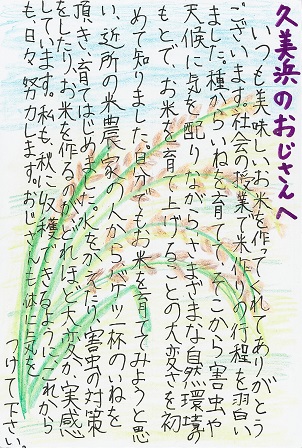 久美浜のおじさんへ
いつも美味しいお米を作ってくれてありがとう
ございます。社会の授業で米作りの行程を習い
ました。種からいねを育てて、そこから害虫や
天候に気を配りながら、さまざまな自然環境の
もとで、お米を育て上げることの大変さを初
めて知りました。自分でもお米を育ててみようと思
い、近所の米農家の人から、バケツ一杯のいねを
頂き、育てはじめました。水をかえたり、害虫の対策
をしたり、お米を作るのがどれほど大変か実感
しています。私も、秋に収穫できるように、これから
も日々努力します。おじさんも体に気を
つけて下さい。